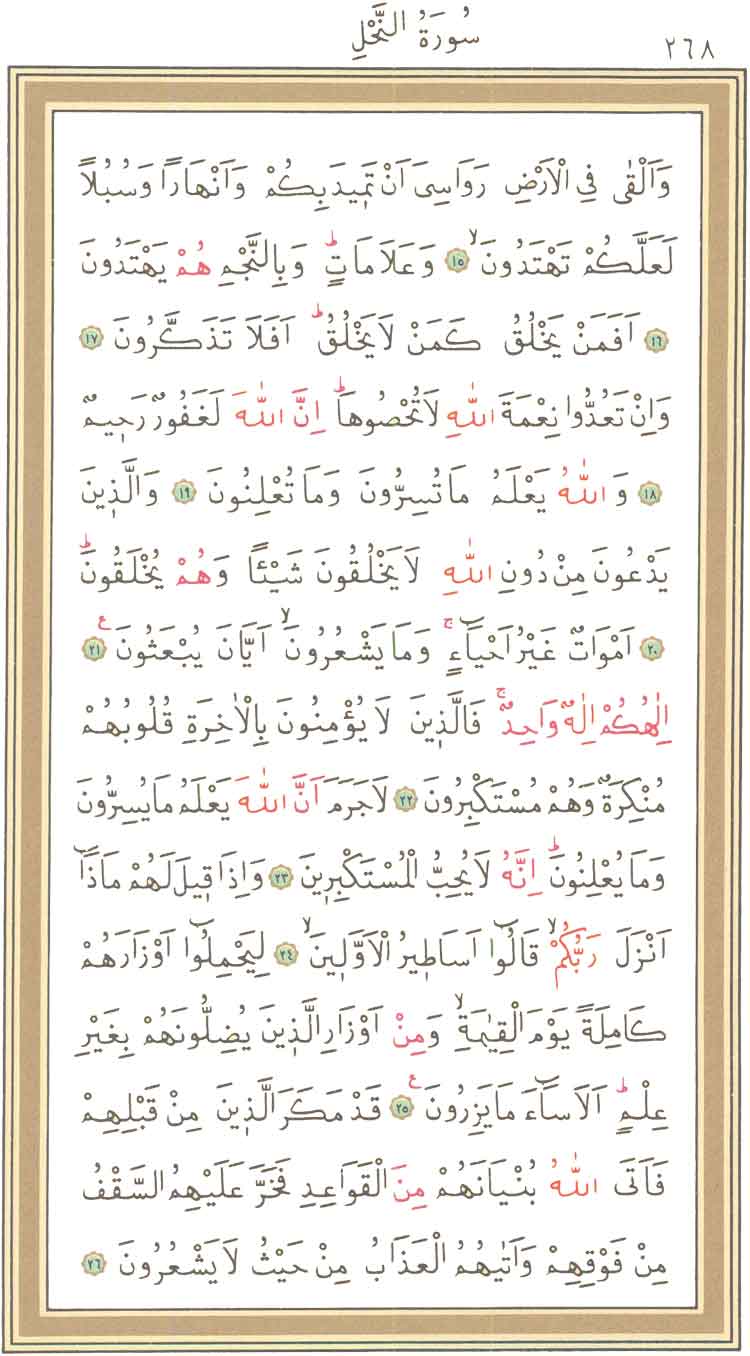 ٢٦٨
سُورَةُ النَّحْلِ
وَاَلْقٰى فِي الْاَرْضِ رَوَاسِيَ اَنْ تَمٖيدَ بِكُمْ وَاَنْهَارًا وَسُبُلًا
لَعَلَّكُمْ تَهْتَدُونَۙ ﴿١٥﴾ وَعَلَامَاتٍؕ وَبِالنَّجْمِ هُمْ يَهْتَدُونَ
﴿١٦﴾ اَفَمَنْ يَخْلُقُ كَمَنْ لَا يَخْلُقُؕ اَفَلَا تَذَكَّرُونَ ﴿١٧﴾
وَاِنْ تَعُدُّوا نِعْمَةَ اللّٰهِ لَا تُحْصُوهَاؕ اِنَّ اللّٰهَ لَغَفُورٌ رَحٖيمٌ
﴿١٨﴾ وَاللّٰهُ يَعْلَمُ مَا تُسِرُّونَ وَمَا تُعْلِنُونَ ﴿١٩﴾ وَالَّذٖينَ
يَدْعُونَ مِنْ دُونِ اللّٰهِ لَا يَخْلُقُونَ شَيْـًٔا وَهُمْ يُخْلَقُونَؕ
﴿٢٠﴾ اَمْوَاتٌ غَيْرُ اَحْيَٓاءٍۚ وَمَا يَشْعُرُونَۙ اَيَّانَ يُبْعَثُونَ ﴿٢١﴾ ع
اِلٰهُكُمْ اِلٰهٌ وَاحِدٌۚ فَالَّذٖينَ لَا يُؤْمِنُونَ بِالْاٰخِرَةِ قُلُوبُهُمْ
مُنْكِرَةٌ وَهُمْ مُسْتَكْبِرُونَ ﴿٢٢﴾ لَا جَرَمَ اَنَّ اللّٰهَ يَعْلَمُ مَا يُسِرُّونَ
وَمَا يُعْلِنُونَؕ اِنَّهُ لَا يُحِبُّ الْمُسْتَكْبِرٖينَ ﴿٢٣﴾ وَاِذَا قٖيلَ لَهُمْ مَاذَٓا
اَنْزَلَ رَبُّكُمْۙ قَالُٓوا اَسَاطٖيرُ الْاَوَّلٖينَۙ ﴿٢٤﴾ لِيَحْمِلُٓوا اَوْزَارَهُمْ
كَامِلَةً يَوْمَ الْقِيٰمَةِۙ وَمِنْ اَوْزَارِ الَّذٖينَ يُضِلُّونَهُمْ بِغَيْرِ
عِلْمٍؕ اَلَا سَٓاءَ مَا يَزِرُونَ ﴿٢٥﴾ ع قَدْ مَكَرَ الَّذٖينَ مِنْ قَبْلِهِمْ
فَاَتَى اللّٰهُ بُنْيَانَهُمْ مِنَ الْقَوَاعِدِ فَخَرَّ عَلَيْهِمُ السَّقْفُ
مِنْ فَوْقِهِمْ وَاَتٰيهُمُ الْعَذَابُ مِنْ حَيْثُ لَا يَشْعُرُونَ ﴿٢٦﴾